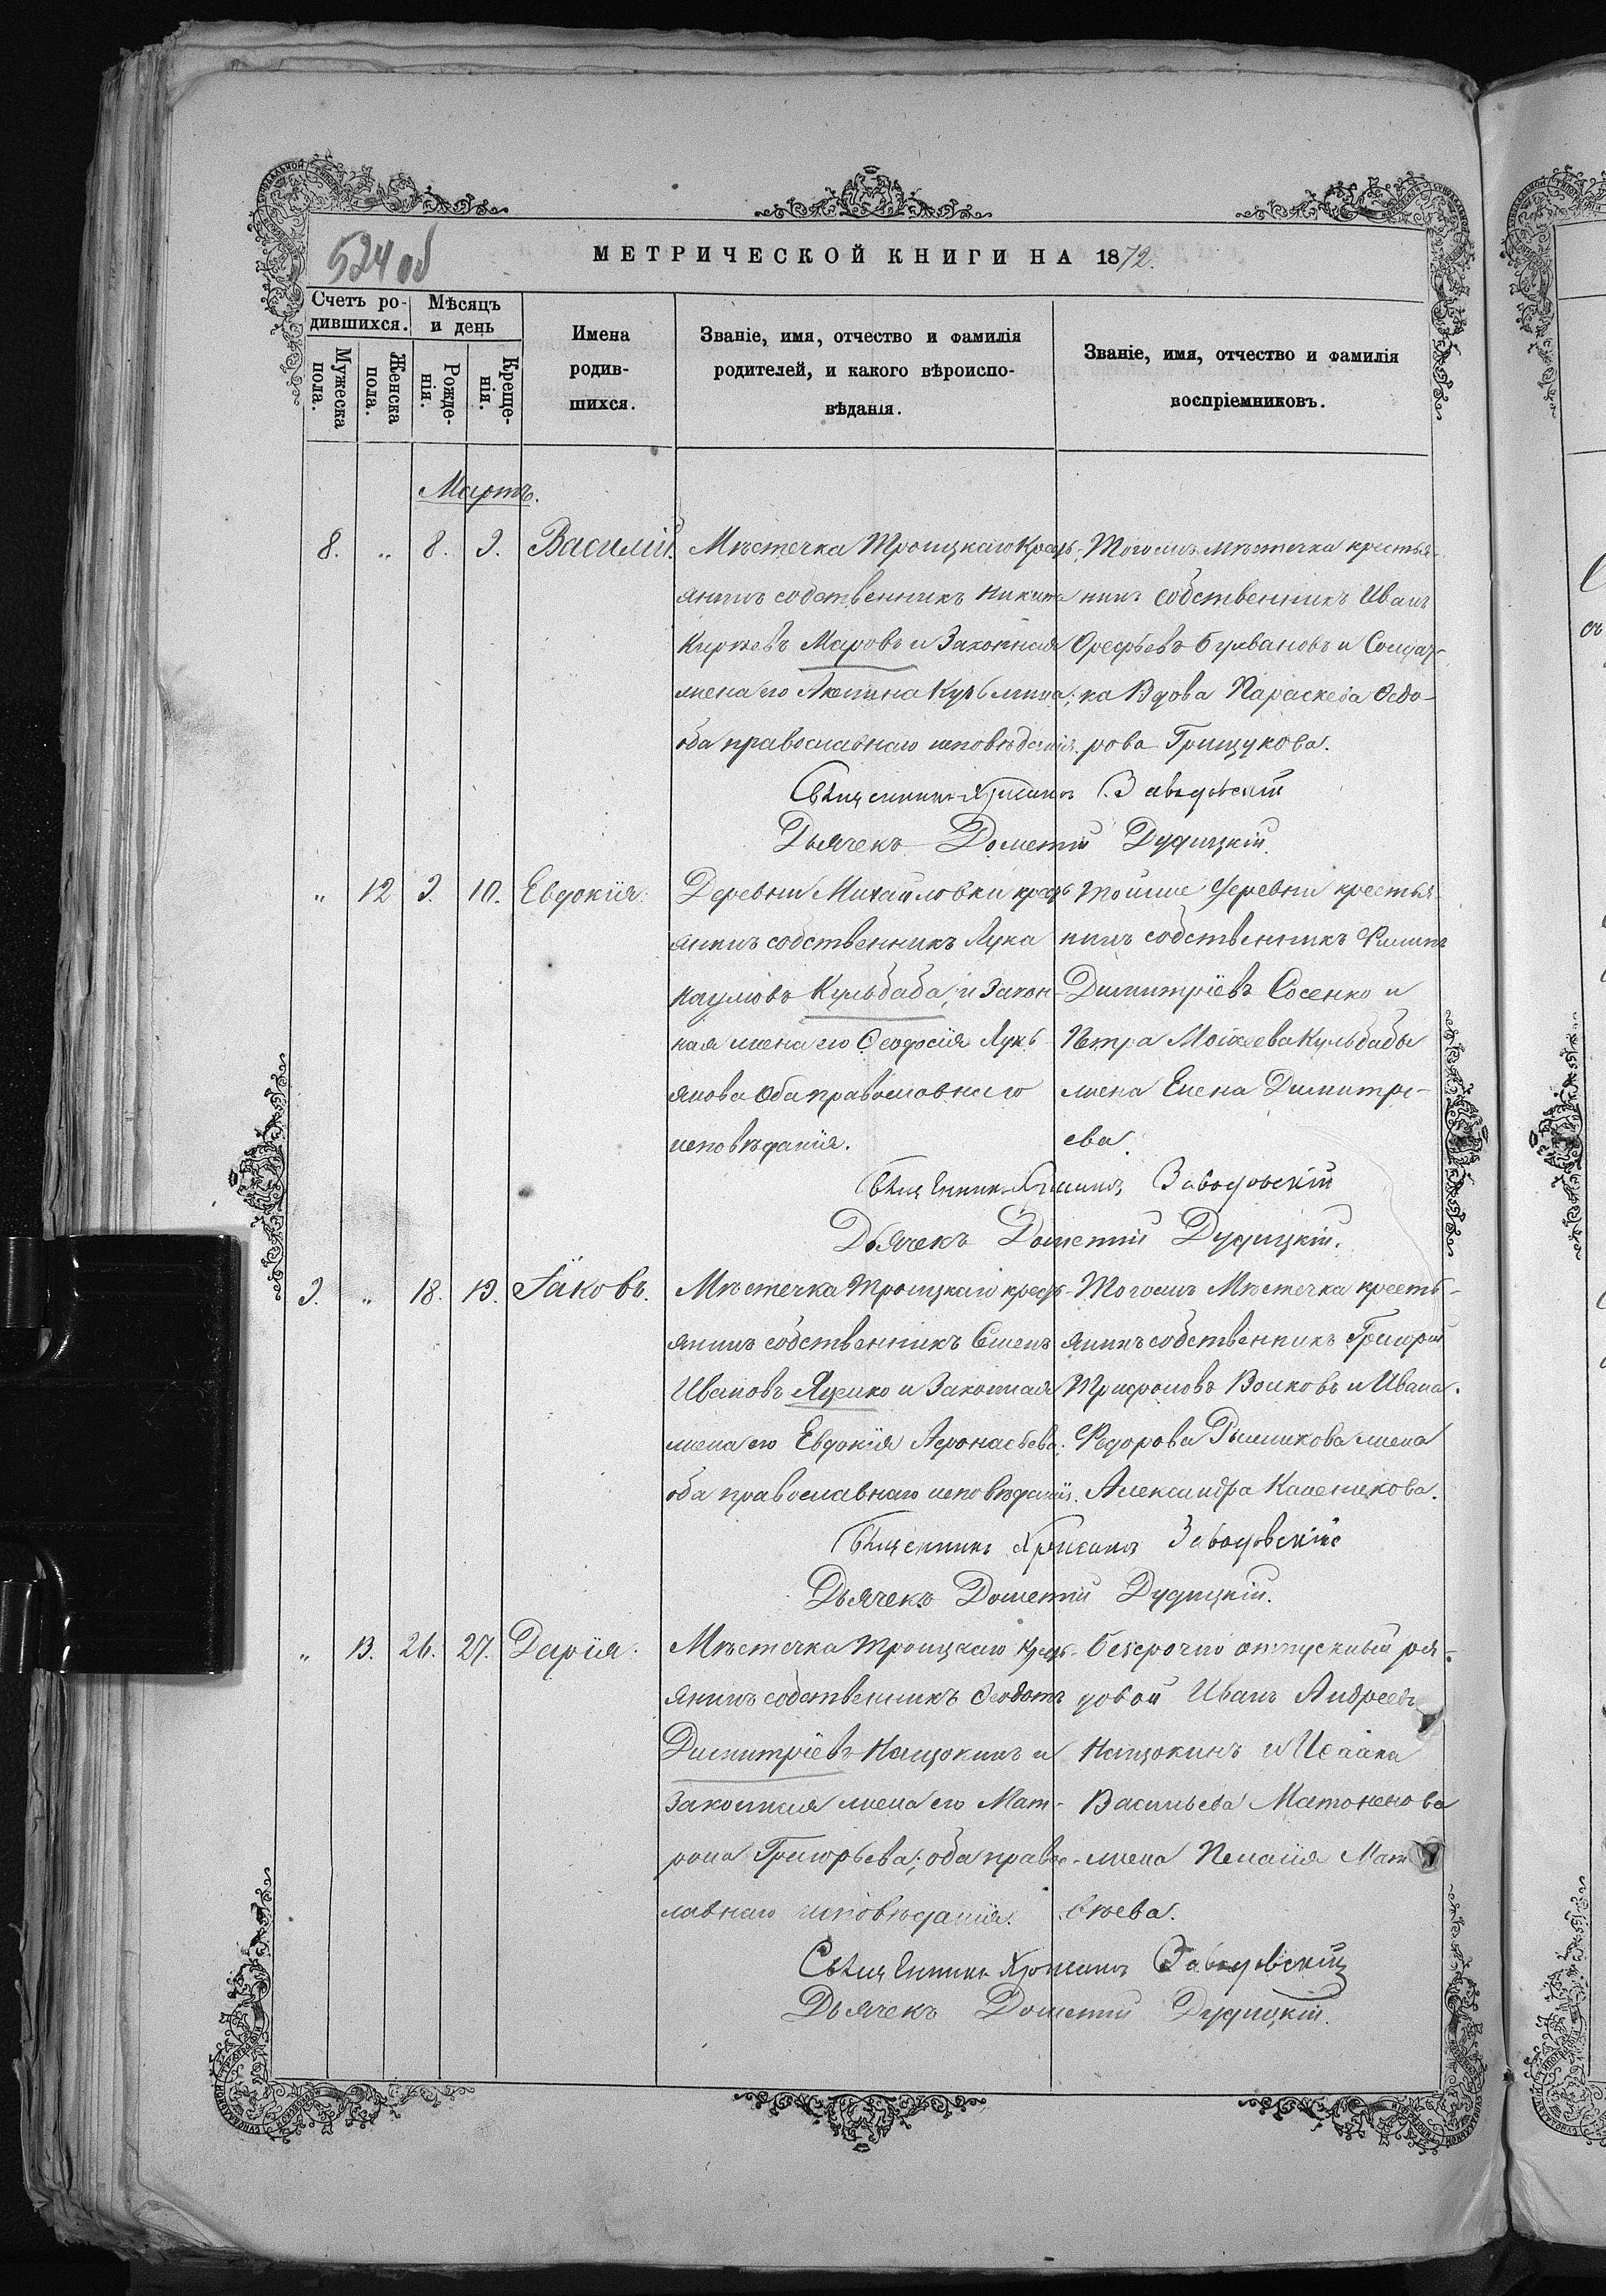 524 об
МЕТРИЧЕСКОЙ КНИГИ НА 1872.
Счетъ ро-
дившихся.
Мужеска пола.
Женска пола.
Мѣсяцъ
и день
Рожде-
нія.
Креще-
нія.
Имена
родив-
шихся.
Званіе, имя, отчество и фамилія
родителей, и какого вѣроиспо-
вѣданія.
Званіе, имя, отчество и фамилія
воспріемниковъ.
Мартъ.
8. „ 8. 9. Василій.
Мѣстечка Троицкаго Кресть-
янинъ собственникъ Никита
Маровъ и Законная
жена его Кузьмина;
оба православнаго исповѣданія.
Тогожъ мѣстечка крестья-
нинъ собственникъ Иванъ
Ореѳьевъ Булвановъ и Солдат-
ка Вдова Параскева Ѳедо-
рова Грищукова.
Священникъ Заводовскій
Дьячекъ Дометій Дудицкій.
„ 12 9. 10. Евдокія.
Деревни Михайловки кресть
янинъ собственникъ Лука
Наумовъ Кульбаба, и Закон-
ная жена его Ѳеодосія Лукь
янова оба православнаго
исповѣданія.
Тойже деревни крестья
нинъ собственникъ Филипъ
Димитріевъ Сосенко и
Петра Моисеева Кульбабы
жена Елена Димитрі-
ева.
Священникъ Заводовскій
Дьячекъ Дометій Дудицкій.
9. „ 18. 19. Іаковъ.
Мѣстечка Троицкаго кресть-
янинъ собственникъ Сименъ
Ивановъ Яценко и Законная
жена его Евдокія Аѳонасьева;
оба православнаго исповѣданія.
Тогожъ Мѣстечка кресть-
янинъ собственникъ Григорій
Триѳоновъ Волковъ и Ивана
Ѳедорова жена
Александра Каленикова.
Священникъ Заводовскій
Дьячекъ Дометій Дудицкій.
„ 13. 26. 27. Дарія.
Мѣстечка Троицкаго Кресть-
янинъ собственникъ Ѳеодотъ
Димитріевъ Нащокинъ и
Законная жена его Мат-
рона Григорьева; оба правос-
лавнаго исповѣданія.
Безсрочно отпускный ря-
довой Иванъ Андреевъ
Нащокинъ и Исаака
Васильева Матоненова
жена Пелагія Мат
вѣева.
Священникъ Заводовскій
Дьячекъ Дометій Дудицкій.